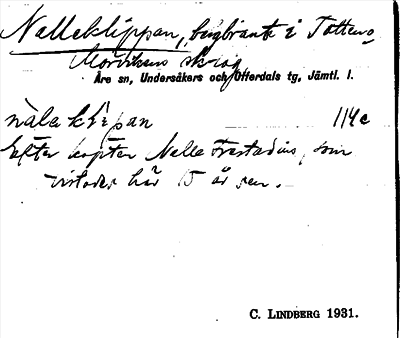 Nalleklippan, bergbrant i Totten o
Mörvikens skog
Åre sn, Undersåkers och Offerdals tg, Jämtl. l.
nàlək lìpan 114c
Efter kapten Nalle Frestadius, som
vistades här 15 år sen.
C. LINDBERG 1931.